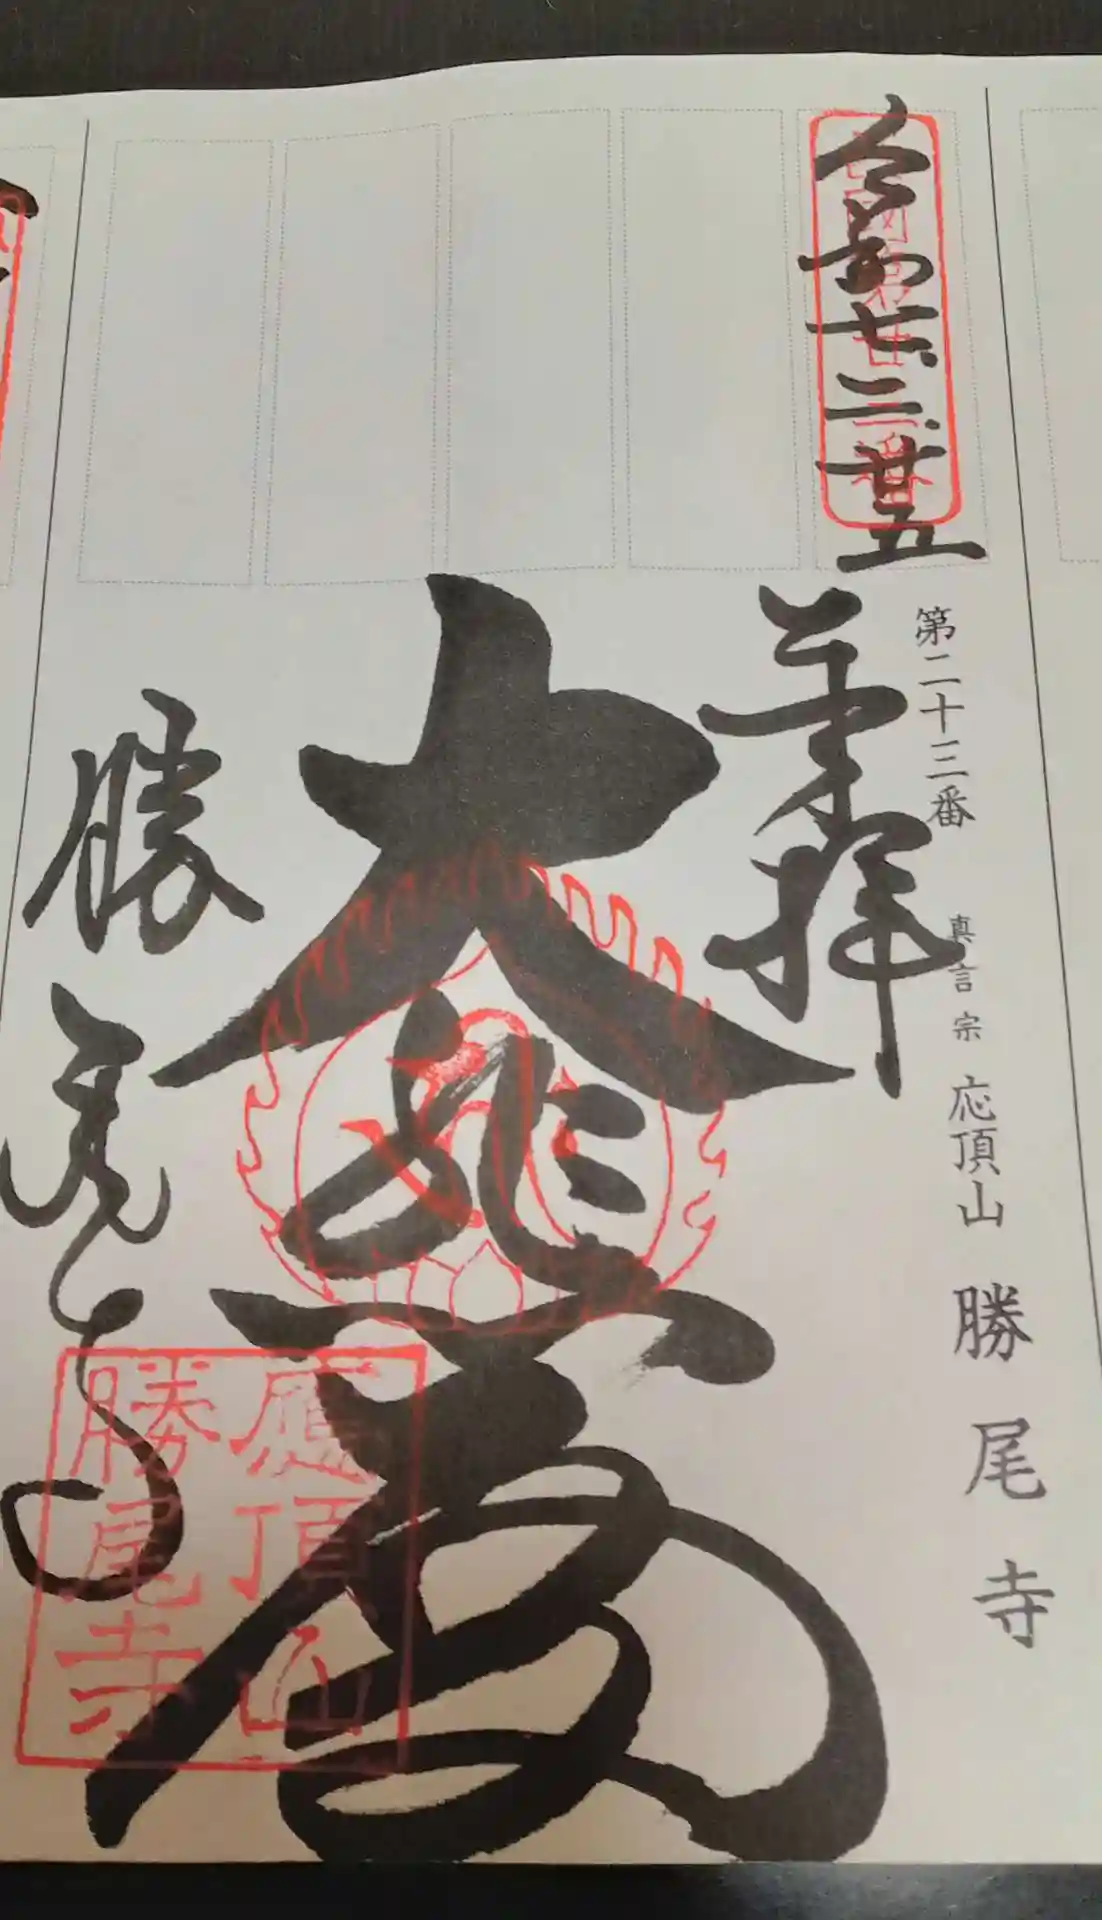 第二十三番 真言宗 応頂山 勝尾寺
令和七、二、廿五
奉拝
大悲閣
勝尾寺
應頂山
勝尾寺